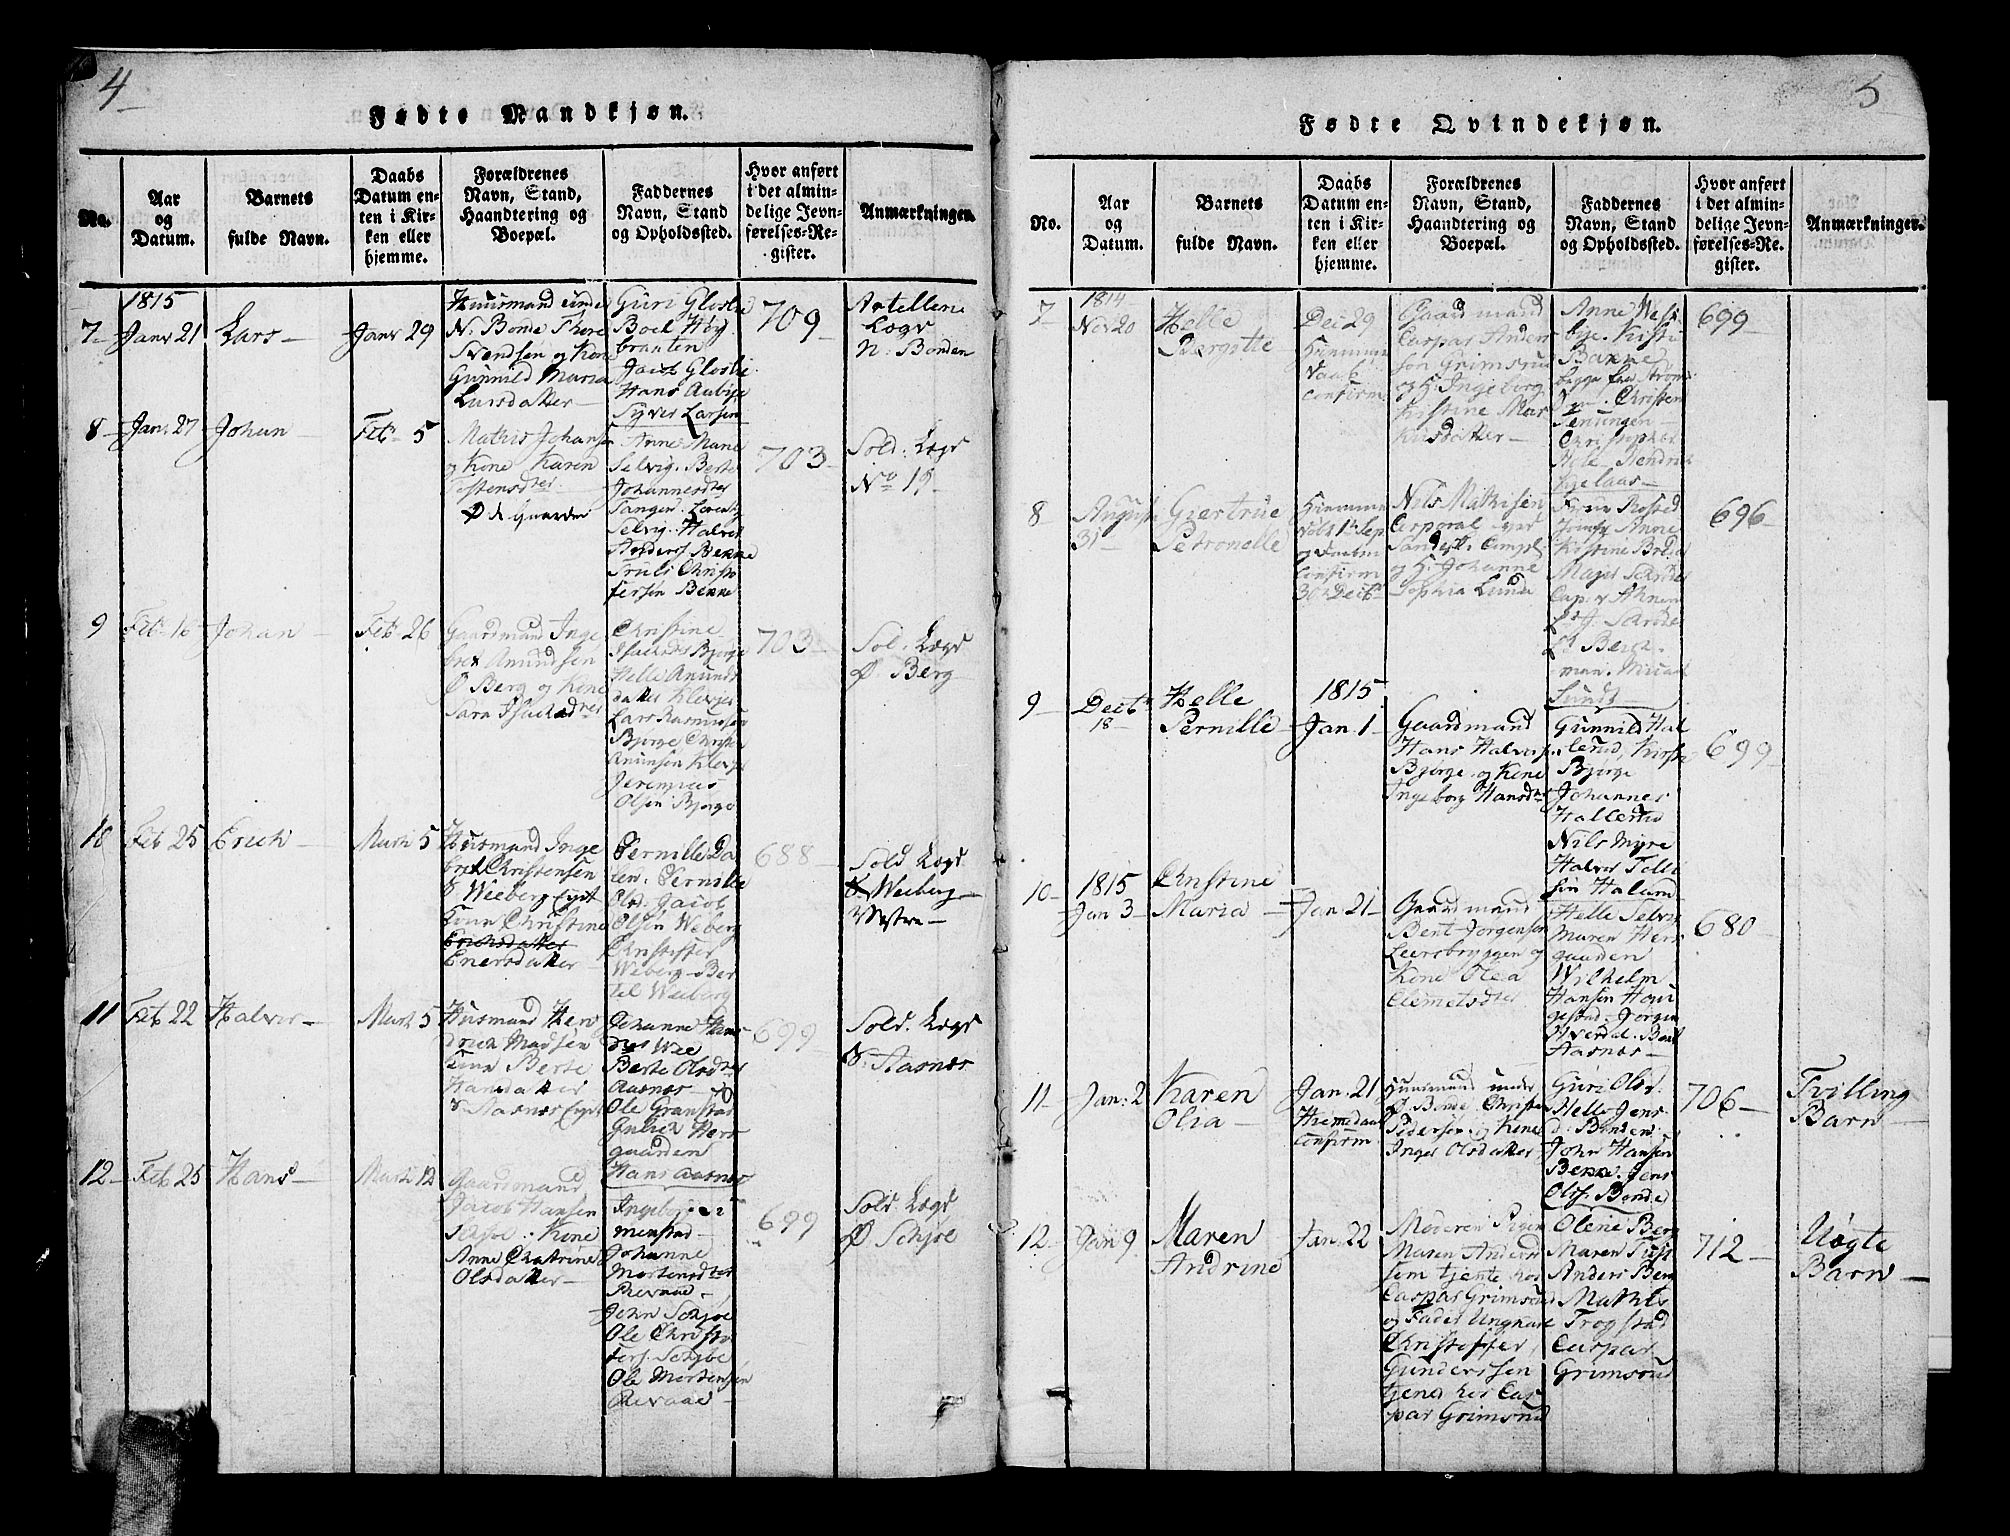 4
Fødte Mandkjøn.
No.
Aar
og
Datum.
Barnets
fulde Navn.
Daabs
Datum en-
ten i Kir-
ken eller
hjemme.
Forældrenes
Navn, Stand,
Haandtering og
Boepæl.
Faddernes
Navn, Stand
og Opholdssted.
Hvor anført
i det almin-
delige Jevn-
førelses-Re-
gister.
Anmærkninger.
1815
7
Janv 21
Lars
Janv 29
Huusmand under
N. Bonde Thore
Svendsen og Kone
Gunnild Maria
Larsdatter
Guri Gloslie
Boel Høy
braaten
Jacob Gloslie
Hans Aubye
Syver Larsen
709
Artellerie
Lægd
N: Bonden
8
Jan: 27
Johan
Feb 5
Mathis Johansen
og Kone Karen
Ø de Gaarden
Anne Marie
Selvig. Berte
Johannesdter
Tangen. Lorentz
Selvig. Halvor
Anders. Bekke
Truls Christo
fersen Bekke
703
Sold: Lægd
No 15
9
Feb. 16
Johan
Feb. 26
Gaardmand Inge
bret Amundsen
Ø Berg og Kone
Sara Isachsdter
Christine
Isachsdtr Bjørge
Helle Amunds
datter Klevjer
Lars Rasmussen
Bjørge Christen
Amunsen Klevjer
Jeremias
Olsen Bjørge
703
Sol. Lægd
Ø Berg
10
Feb 25
Erich
Marti 5
Husmand Inge
bret Christensen
V. Weeberg Eyet
Kone Christine
Erichsdatter
Enersdatter
Pernille Da
len. Pernille
Olsd. Jacob
Olsen Weberg
Christoffer
Weberg. Ber
tel Weeberg
688
Sold. Lægd
Weeberg
Vestre
11
Feb 22
Halvor
Marti 5
Husmand Hen
drich Madsen
Kone Berte
Hansdatter
V. Aasnæs Eyet
Johanne Hans
dter Wee
Berte Olsdter
Aasnæs
Ole Granstad
Gulich Herr
gaarden
Hans Aasnæs
699
Sold. Lægd
V. Aasnæs
12
Feb 25
Hans
Marti 12
Gaardmand
Jacob Hansen
Schjøe. Kone
Anne Chatrine
Olsdatter
Ingeborg Si
menstad
Johanne
Mortensdter
Prevaae
John Schjøe
Ole Christo
fers. Schjøe
Ole Mortensen
Prevaae
699
Sold. Lægd
Ø Schjøe
5
Fødte Qvindekjøn.
No.
Aar
og
Datum.
Barnets
fulde Navn.
Daabs
Datum en-
ten i Kir-
ken eller
hjemme.
Forældrenes
Navn, Stand,
Haandtering og
Boepæl.
Faddernes
Navn, Stand
og Opholdssted.
Hvor anført
i det almin-
delige Jevn-
førelses-Re-
gister.
Anmærkninger.
1814
7
Nov 20
Helle
Bergitte
Dec 29
Hiemme
Confirm.
Gaardmand
Caspar Ander
son Grimsrud
og H. Ingeborg
Kirstine Mar
kusdatter
Anne Wess
bye. Kirsti
Bakke
begge fra Strøms
Christen
Pentingen
Christopher
Hole. Hendrich
699
8
August
31
Giertrue
Petronelle
Hiemme
døbt 1te Sep
Confirm
30 Decbr
Nils Mathisen
Corporal ved
og H. Johanne
Sophia Lund
Jomfr Anne
Kirstine
Major Schrøder
696
9
Decbr
18
Helle
Pernille
1815
Jan 1
Gaardmand
Hans Halvorsen
Bjørge og Kone
Ingeborg Hansdtr
Gunnild Hal
lerud, Kirsti
Bjørge
Johannes
Hallerud
Nils Myre
Halvor Tolli
sen Halund
699
10
1815
Jan 3
Christine
Maria
Jan. 21
Gaardmand
Bent Jorgensen
Leersbryggen og
Kone Olea
Clemetsdter
Helle Selvig
Maren Herr
gaarden
Wilhelm
Hansen Hou
gestad. Jorgen
Overdal. Bent
Aasnæs
680
11
Jan: 2
Karen
Olia
Jan. 21
Hiemdaa
Confirm
Huusmand under
Ø. Bonde. Christen
Pedersen og Kone
Inger Olsdatter
Guri Olsd.
Helle Jens
d. Bonden
John Hansen
Bekke. Jens
Olss. Bonde
706
Tvilling
Barn
12
Jan 9
Maren
Andrine
Jan. 22
Moderen Pigen
Maren Andersd
som tjente hos
Caspar Grimsrud
og Fader Ungkarl
Christoffer
Gunderssen
tjener hos Cas
par Grimsrud
Olene Berg
Maren
Anders Berg
Mathis
Trogstad
Caspar
Grimsrud
712
Uægte
Barn